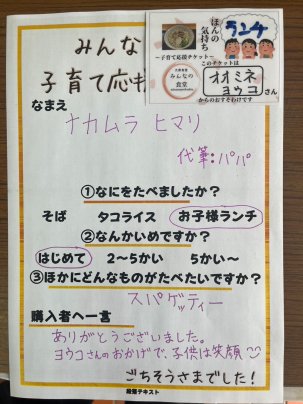 みんな
子育て応
ランチ
ほんの
気持ち
〜子育て応援チケット〜
このチケットは
みんなの
食堂
オオミネ
ヨウコさん
からのおすそわけです
なまえ
ナカムラ ヒマリ
代筆:パパ
①なにをたべましたか?
そば タコライス お子様ランチ
②なんかいめですか?
はじめて 2〜5かい 5かい〜
③ほかにどんなものがたべたいですか?
スパゲッティー
購入者へ一言
ありがとうございました。
ヨウコさんのおかげで、子供は笑顔
ごちそうさまでした!